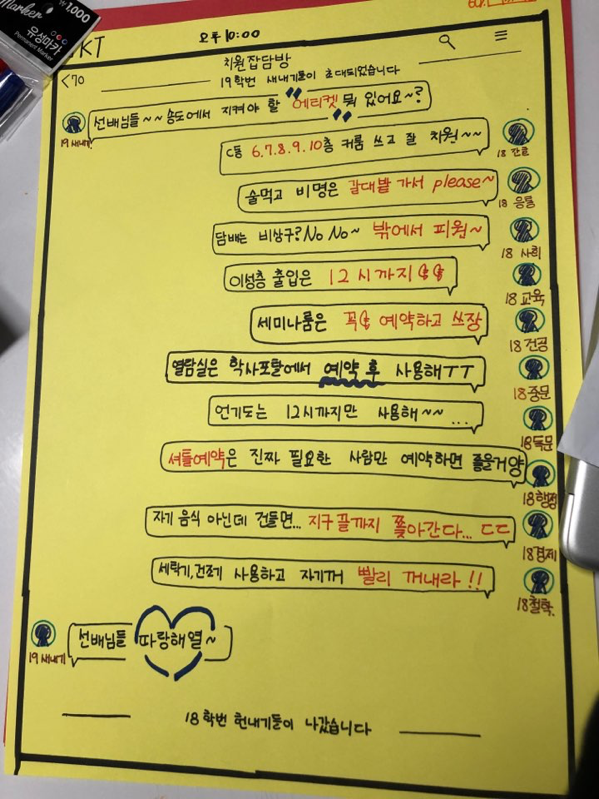 Marker
₩1,000
유성마카
Permanent Marker
KT
오후 10:00
<70
치원잡담방
19학번 새내기들이 초대되었습니다
선배님들~~ 송도에서 지켜야 할 "에티켓" 뭐 있어요~?
19 새내기
C동 6.7.8.9.10층 커룸 쓰고 잘 치원~~
술먹고 비명은 갈대밭 가서 please~
18 응통
담배는 비상구? No No~ 밖에서 피원~
18 사회
이성층 출입은 12시까지
18 교육
세미나룸은 꼭 예약하고 쓰장
18 건공
열람실은 학사포탈에서 예약 후 사용해ㅜㅜ
18중문
언기도는 12시까지만 사용해~~...
18독문
셔틀예약은 진짜 필요한 사람만 예약하면 좋을거양
18행정
자기 음식 아닌데 건들면... 지구끝까지 쫓아간다... ㄷㄷ
18경제
세탁기,건조기 사용하고 자기꺼 빨리 꺼내라!!
18철학
선배님들 따랑해열~
19 새내기
18학번 헌내기들이 나갔습니다